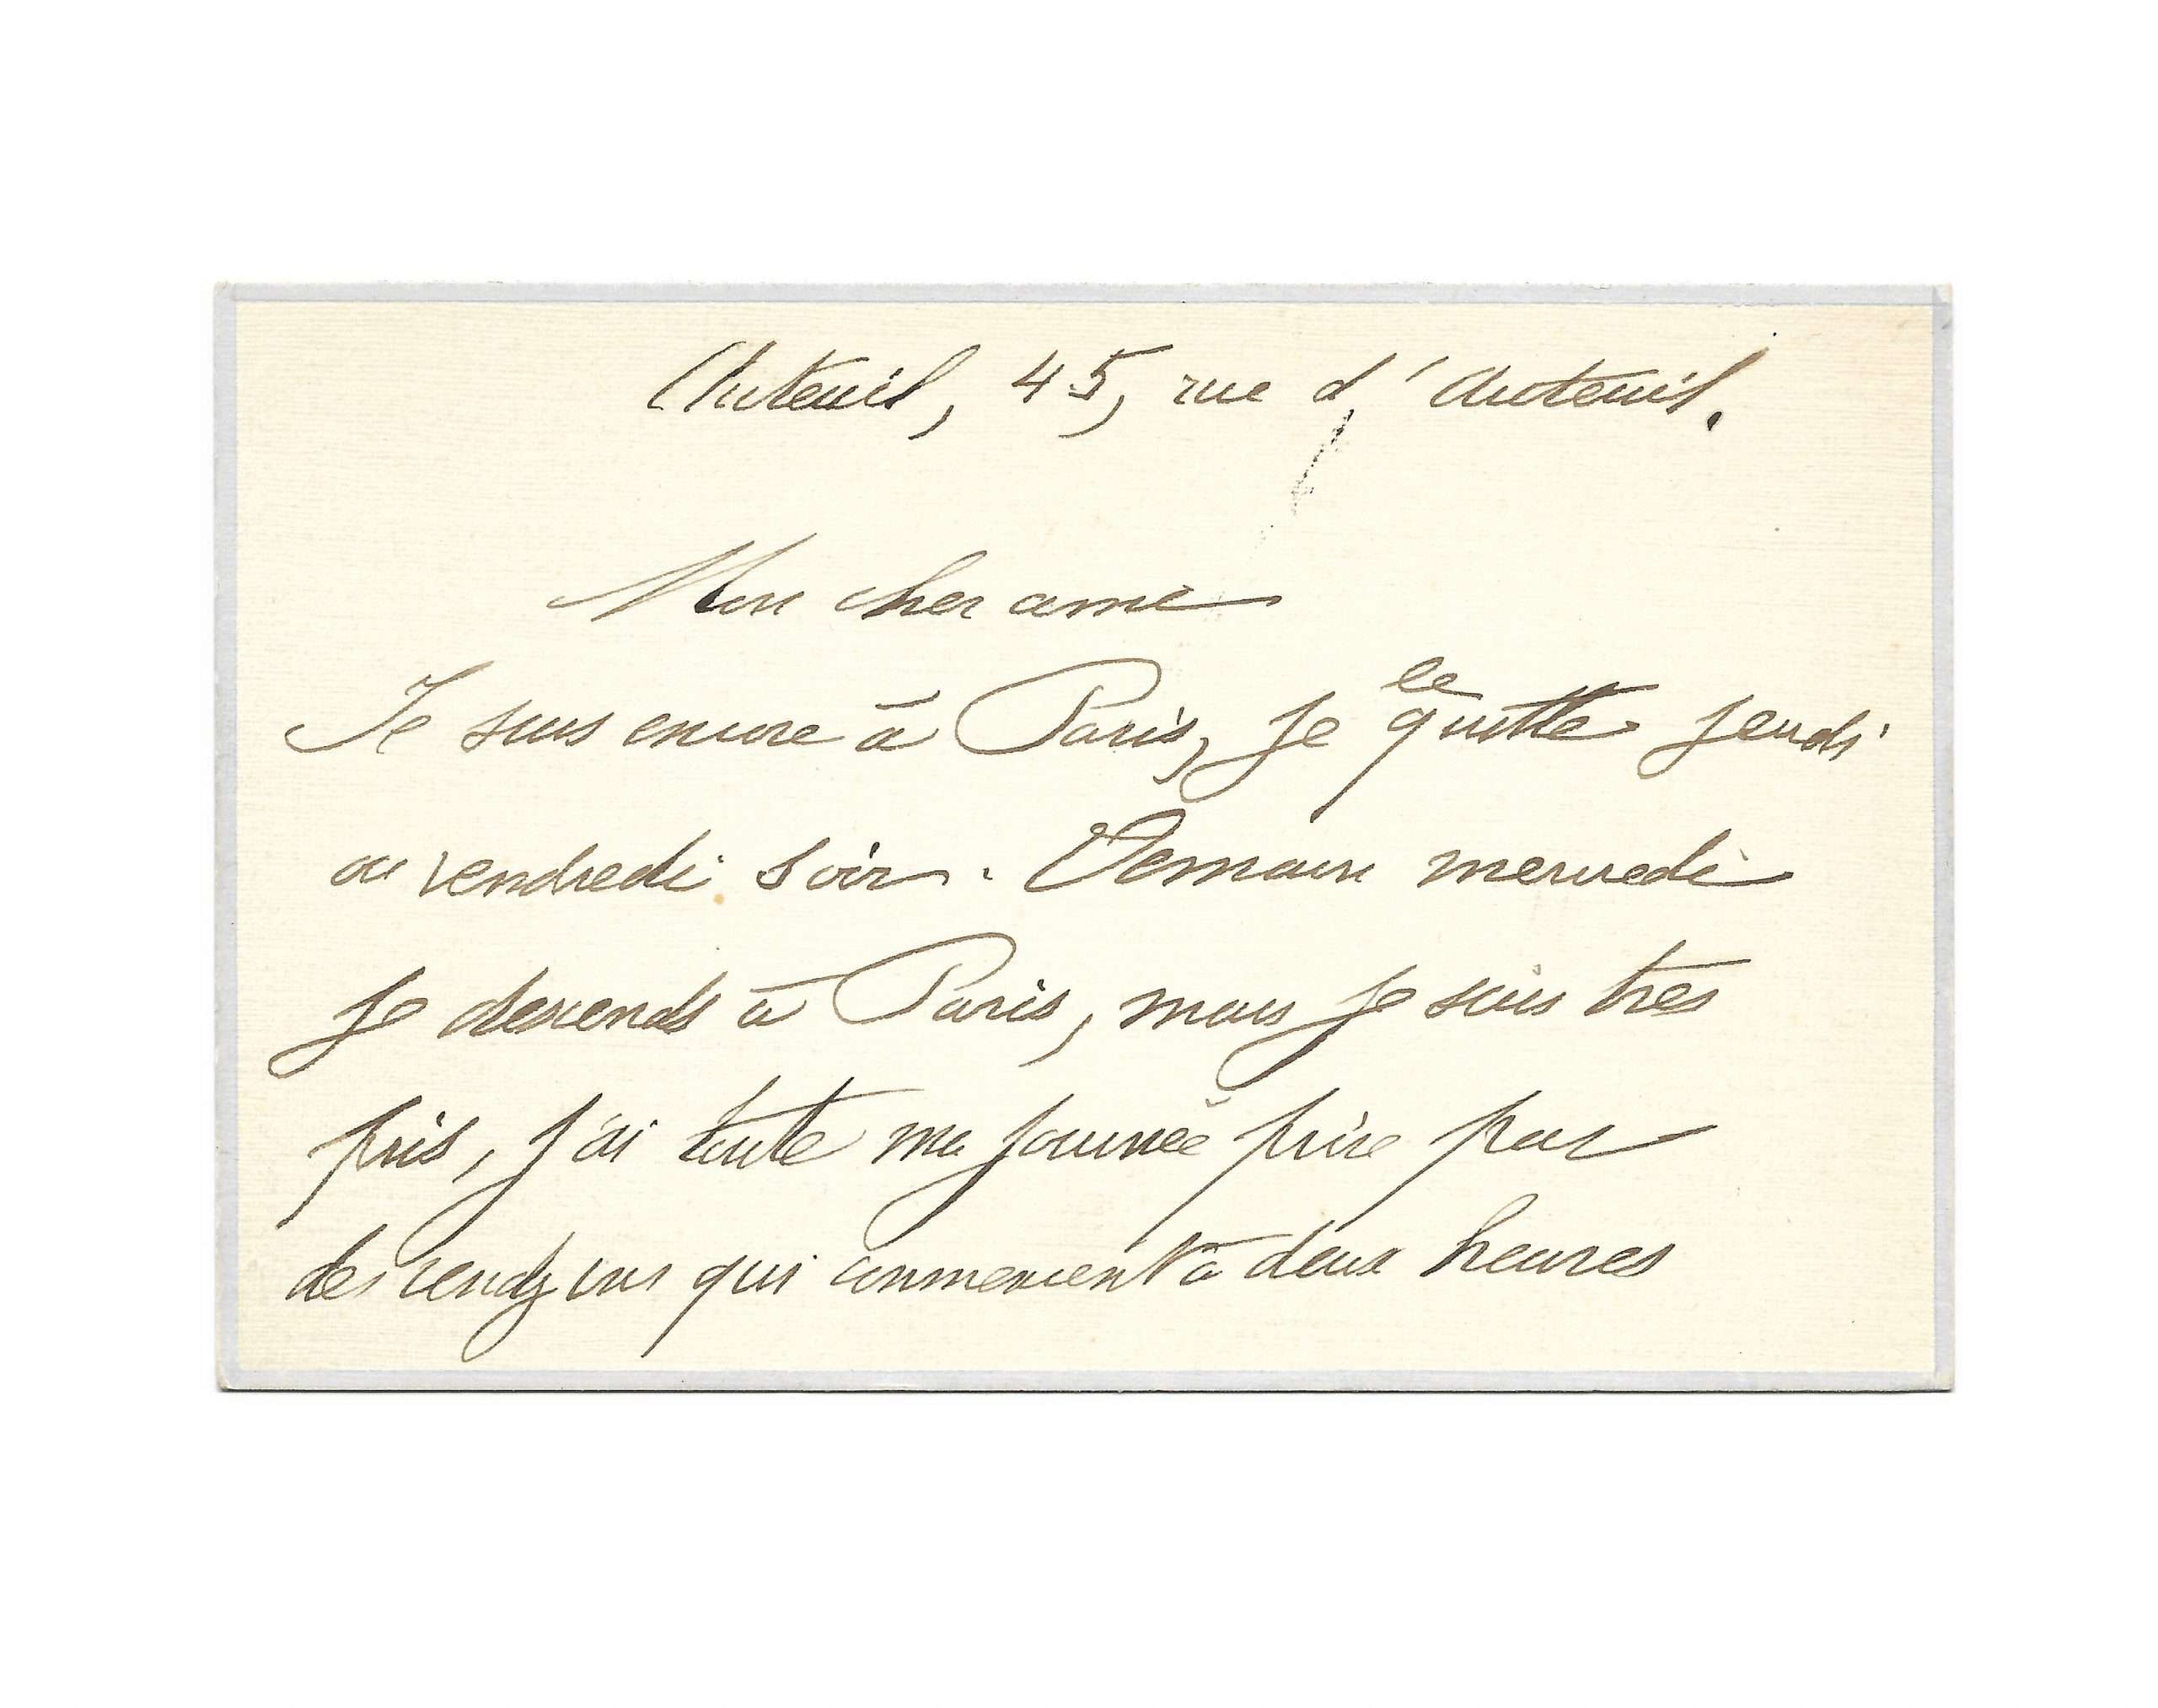 Auteuil, 45, rue d'Auteuil.
Mon cher ami
Je suis encore à Paris, je le quitte jeudi
ou vendredi soir. Demain mercredi
je descends à Paris, mais je suis très
pris, j'ai toute ma journée prise par
des rendz vous qui commencent à deux heures